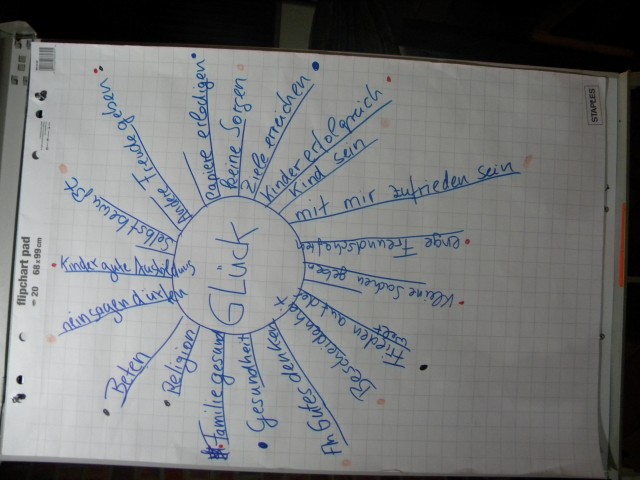 Glück
mit mir zufrieden sein
Kind sein
Kinder erfolgreich
Ziele erreichen
keine Sorgen
Papiere erledigen
Andere Freude geben
Selbstbewußt
Kinder gute Ausbildung
nein sagen dürfen
Beten
Religion
Familie gesund
Gesundheit
An Gutes denken
Bescheidenheit
Frieden auf der
Welt
kleine Sachen geben
enge Freundschaften
STAPLES
flipchart pad
20 68 x 99 cm